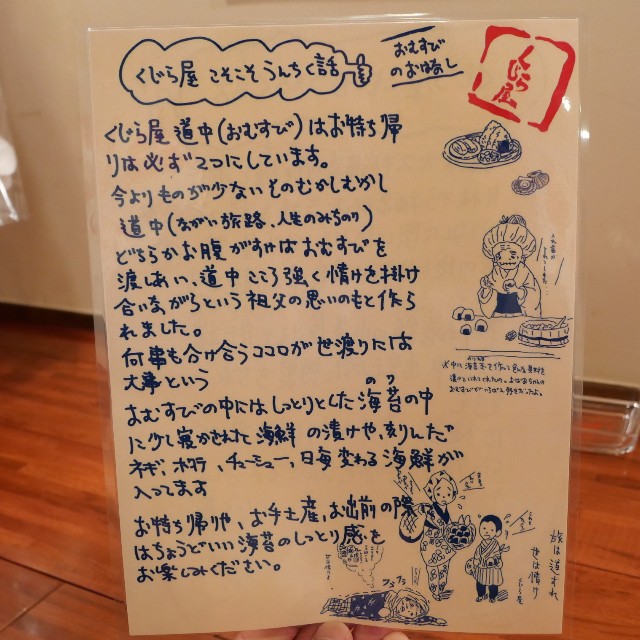 くじら屋 こそこそうんちく話
おむすび
のおはなし
くじら屋
くじら屋 道中(おむすび)はお持ち帰
りは必ず2つにしています。
今よりものが少ないそのむかしむかし
道中(ながい旅路、人生のみちのり)
どちらかお腹がすけばおむすびを
渡しあい、道中 こころ強く情けを掛け
合いながらという祖父の思いのもと作ら
れました。
何事も分け合うココロが世渡りには
大事という
ノリ
おむすびの中にはしっとりとした海苔の中
に少し寝かされた海鮮の漬けや、刻んだ
ネギ、ホタテ、チューシュー、日毎変わる海鮮が
入ってます
お持ち帰りや、お手土産、お出前の際に
はちょうどいい海苔のしっとり感を
お楽しみください。
旅は道ずれ
世は情け